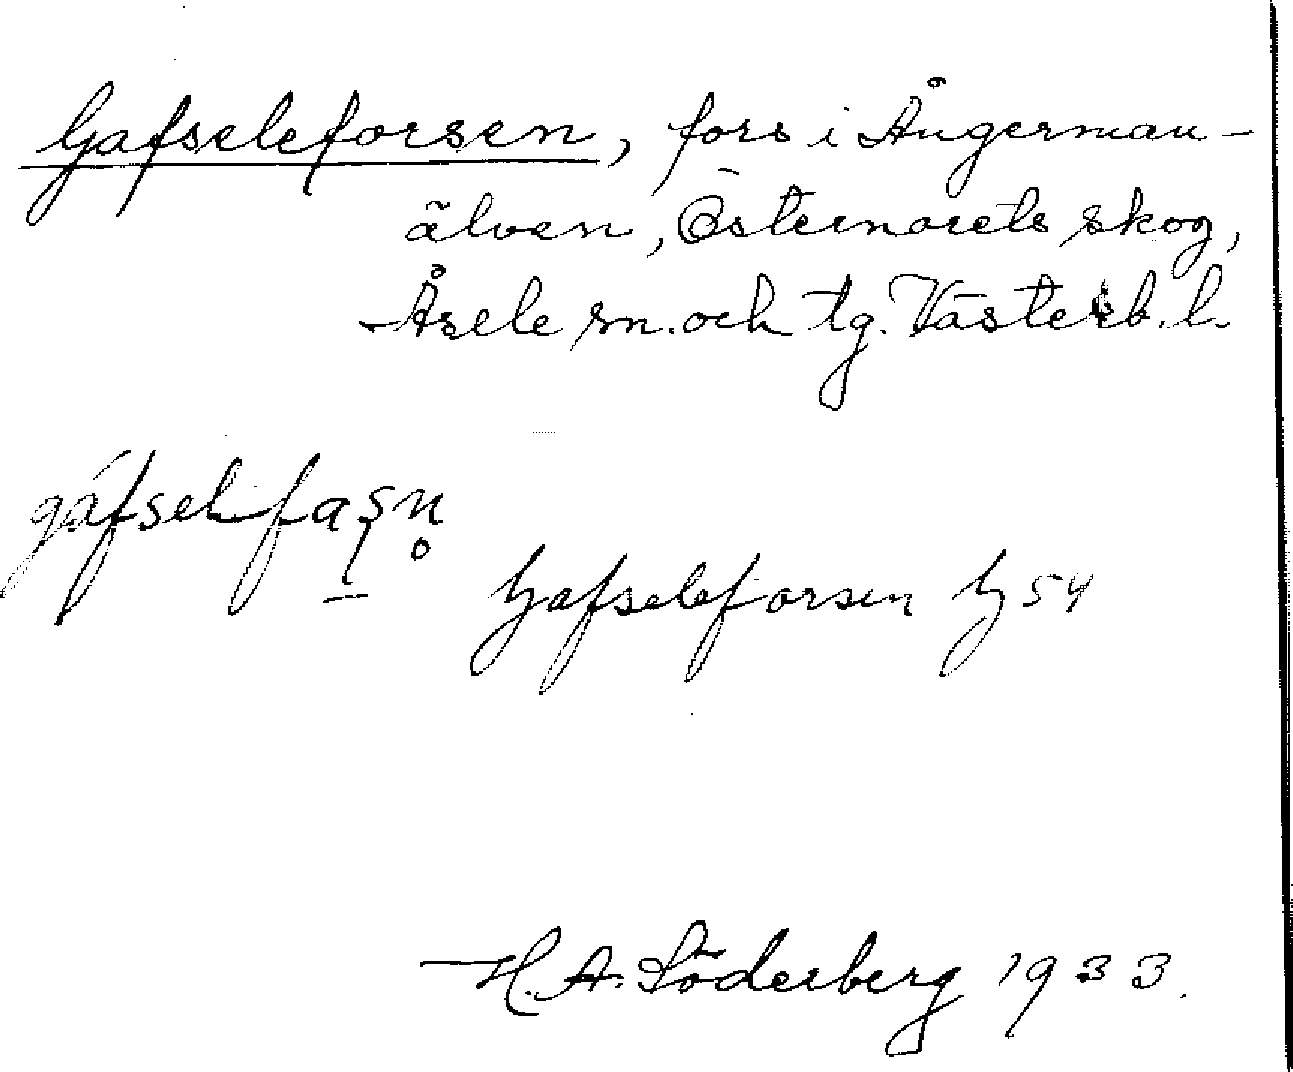 Gafseleforsen, fors i Ångerman-
älven, Östernorets skog,
Åsele sn. och tg. Västerb. l.
gáfselfaʂn̥
Gafseleforsen G 54
H. A. Söderberg 1933.